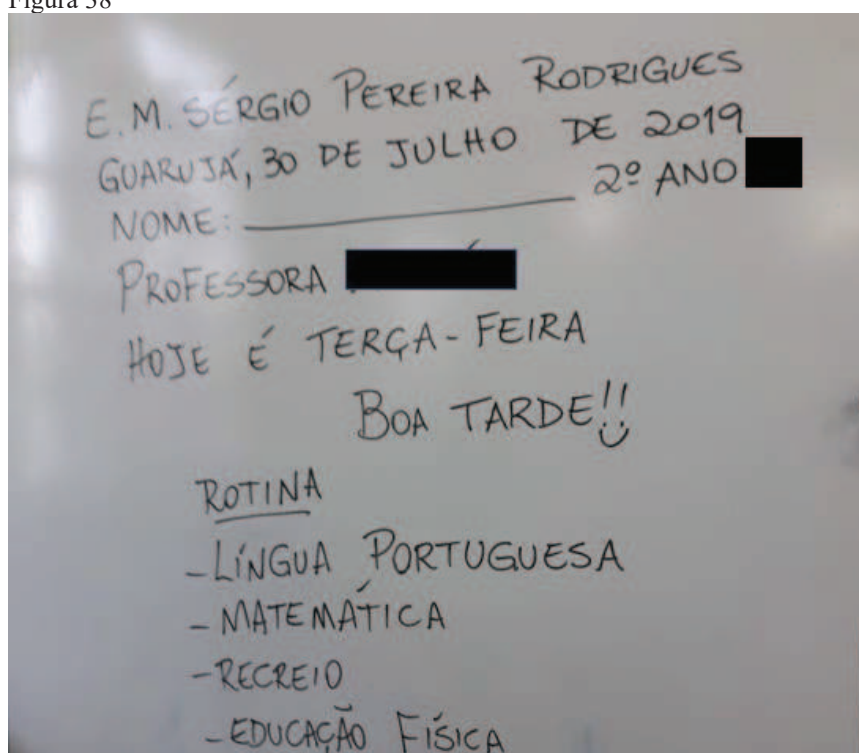 Figura 38
E.M. SÉRGIO PEREIRA RODRIGUES
GUARUJÁ, 30 DE JULHO DE 2019
NOME: 2º ANO
PROFESSORA
HOJE É TERÇA-FEIRA
BOA TARDE!!
ROTINA
-LÍNGUA PORTUGUESA
-MATEMÁTICA
-RECREIO
-EDUCAÇÃO FÍSICA